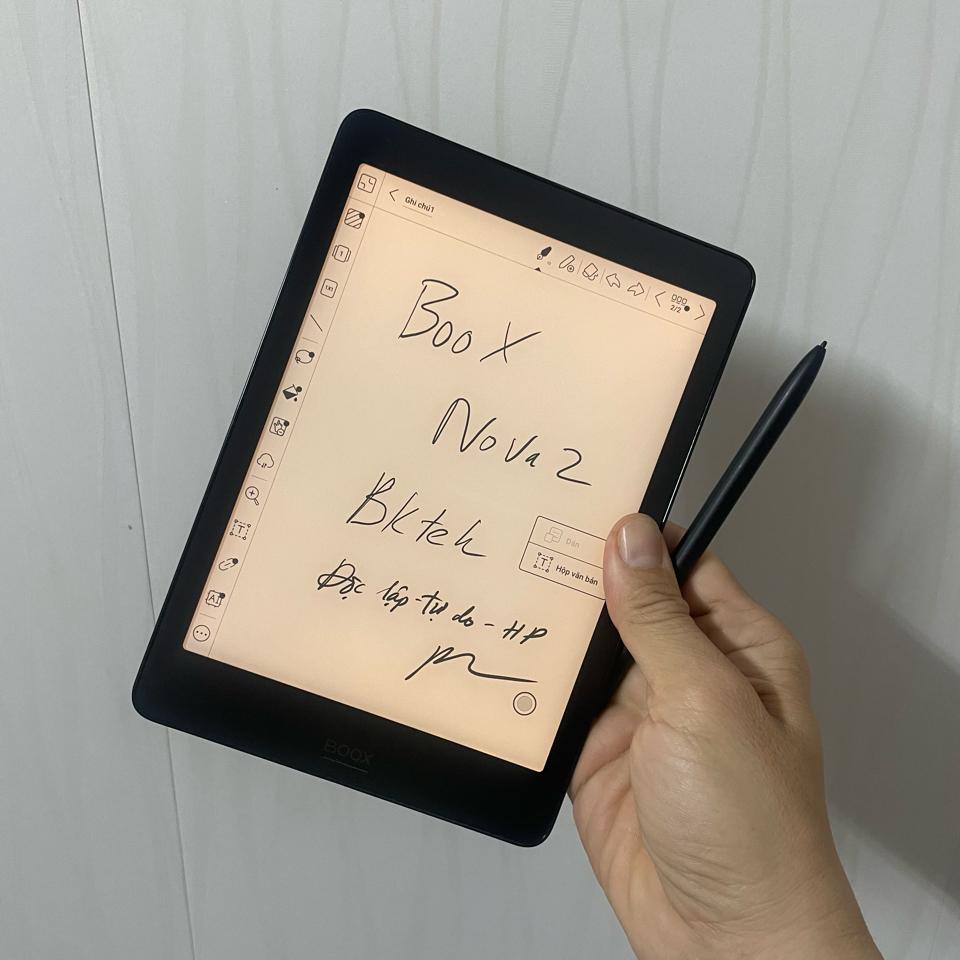 Ghi chú1
2/2
BooX
Nova 2
Bkteh
Dán
Hộp văn bản
Độc lập - tự do - HP
BOOX